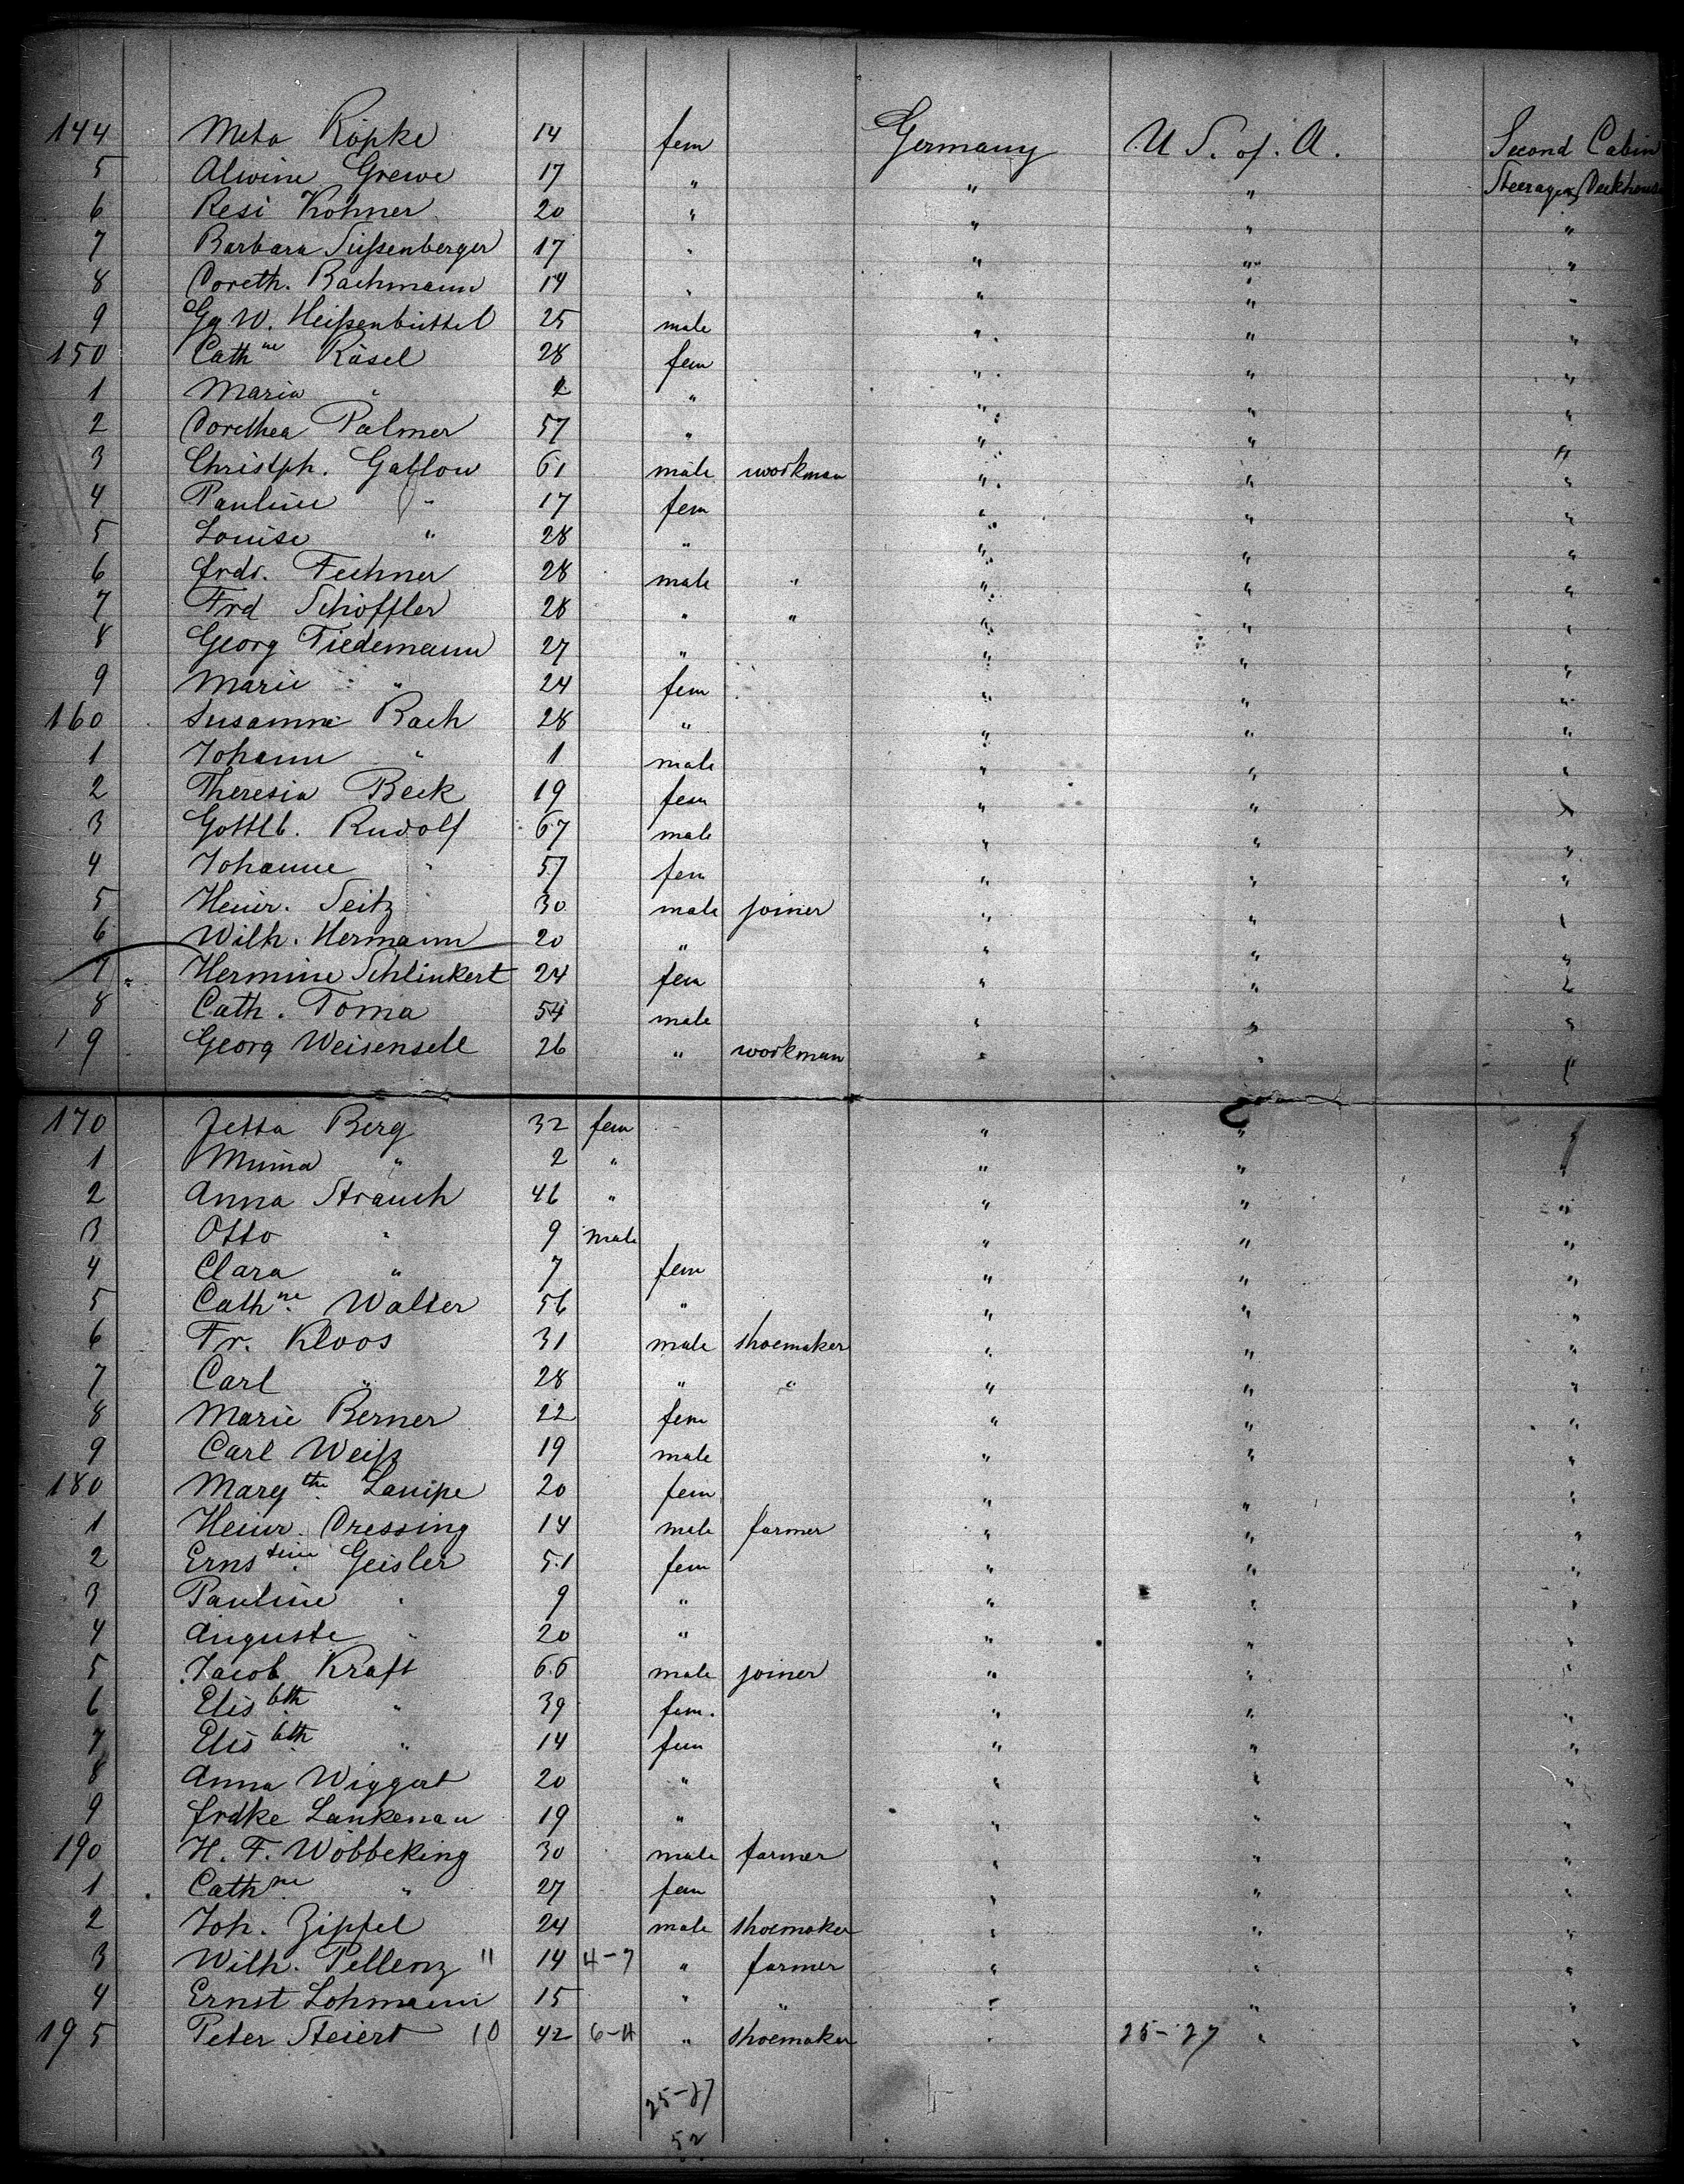 144 Meta Röpke 14 fem Germany U S. of. A. Second Cabin
5 Alwine Grewe 17 " " " Steerage Deckhouse
6 Resi Kohner 20 " " " "
7 Barbara Süßenberger 17 " " " "
8 Doreth. Bachmann 14 " " " "
9 Gg W. Heißenbüttel 25 male " " "
150 Cathne Räsel 28 fem " " "
1 Maria " 2 " " " "
2 Dorethea Palmer 57 " " " "
3 Christph. Gallow 61 male workman " " "
4 Pauline " 17 fem " " "
5 Louise " 28 " " " "
6 Frdr. Fechner 28 male " " " "
7 Frd Schöffler 28 " " " " "
8 Georg Tiedemann 27 " " " "
9 Marie " 24 fem " " "
160 Susanna Bach 28 " " " "
1 Johann " 1 male " " "
2 Theresia Beck 19 fem " " "
3 Gottlb. Rudolf 67 male " " "
4 Johanne " 57 fem " " "
5 Heinr. Seitz 30 male joiner " " "
6 Wilh. Hermann 20 " " " "
7 Hermine Schlinkert 24 fem " " "
8 Cath. Toma 54 male " " "
9 Georg Weisensell 26 " workman " " "
170 Jetta Berg 32 fem " " "
1 Minna " 2 " " " "
2 Anna Strauch 46 " " " "
3 Otto " 9 male " " "
4 Clara " 7 fem " " "
5 Cathne. Walter 56 " " " "
6 Fr. Kloos 31 male shoemaker " " "
7 Carl " 28 " " " " "
8 Marie Berner 22 fem " " "
9 Carl Weiß 19 male " " "
180 Margthe. 20 fem " " "
1 Heinr. Dressing 14 male farmer " " "
2 Ernstine. Geisler 51 fem " " "
3 Pauline " 9 " " " "
4 Auguste " 20 " " " "
5 Jacob Kraft 66 male joiner " " "
6 Elisbth " 39 fem. " " "
7 Elisbth " 14 fem " " "
8 Anna Wiggert 20 " " " "
9 Frdke Lankenau 19 " " " "
190 H. F. Wöbbeking 30 male farmer " " "
1 Cathne " 27 fem " " "
2 Joh. Zipfel 24 male shoemaker " " "
3 Wilh. Pellenz 11 14 4-7 " farmer " " "
4 Ernst Lohmann 15 " " " " "
195 Peter Steiert 10 42 " shoemaker " 25-27 " "
25-27
52